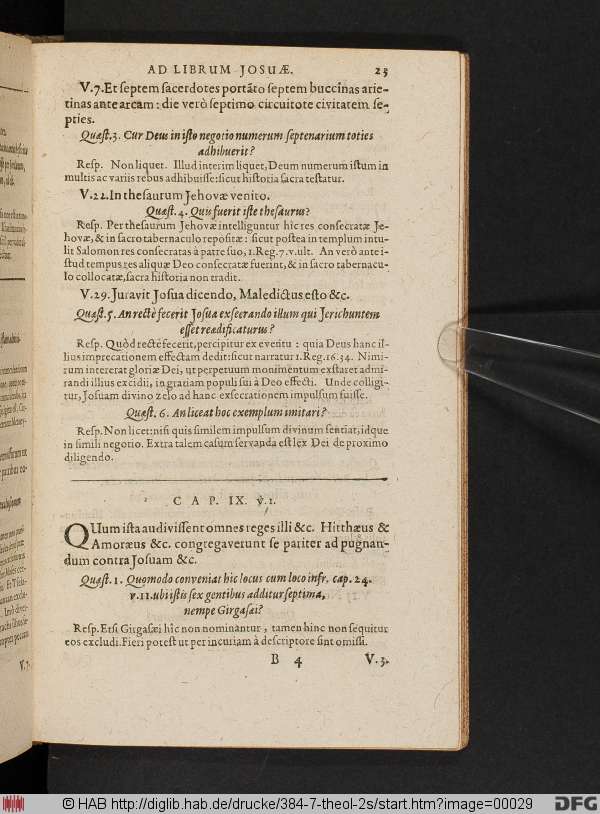 AD LIBRUM JOSUÆ. 23
V. 7. Et septem sacerdotes portãto septem buccinas arie-
tinas ante arcam : die verò septimo circuitote civitatem se-
pties.
Quæst. 3. Cur Deus in isto negotio numerum septenarium toties
adhibuerit?
Resp. Non liquet. Illud interim liquet, Deum numerum istum in
multis ac variis rebus adhibuisse: sicut historia sacra testatur.
V. 22. In thesaurum Jehovæ venito.
Quæst. 4. Quis fuerit iste thesaurus?
Resp. Per thesaurum Jehovæ intelliguntur hic res consecratæ Je-
hovæ, & in sacro tabernaculo repositæ : sicut postea in templum intu-
lit Salomon res consecratas à patre suo, 1. Reg. 7. v. ult. An verò ante i-
stud tempus res aliquæ Deo consecratæ fuerint, & in sacro tabernacu-
lo collocatæ, sacra historia non tradit.
V. 29. Juravit Josua dicendo, Maledictus esto &c.
Quæst. 5. An rectè fecerit Josua exsecrando illum qui Jerichuntem
esset reædificaturus?
Resp. Quòd rectè fecerit, percipitur ex eventu : quia Deus hanc il-
lius imprecationem effectam dedit: sicut narratur 1. Reg. 16. 34. Nimi-
rum intererat gloriæ Dei, ut perpetuum monimentum exstaret admi-
randi illius excidii, in gratiam populi sui à Deo effecti. Unde colligi-
tur, Josuam divino zelo ad hanc exsecrationem impulsum fuisse.
Quæst. 6. An liceat hoc exemplum imitari?
Resp. Non licet: nisi quis similem impulsum divinum sentiat, idque
in simili negotio. Extra talem casum servanda est lex Dei de proximo
diligendo.
CAP. IX. v. 1.
QUum ista audivissent omnes reges illi &c. Hitthæus &
Amoræus &c. congregaverunt se pariter ad pugnan-
dum contra Josuam &c.
Quæst. 1. Quomodo conveniat hic locus cum loco infr. cap. 24.
v. 11. ubi istis sex gentibus additur septima,
nempe Girgasæi?
Resp. Etsi Girgasæi hîc non nominantur, tamen hinc non sequitur
eos excludi. Fieri potest ut per incuriam à descriptore sint omissi.
B 4 V. 3.
V. 7.
© HAB http://diglib.hab.de/drucke/384-7-theol-2s/start.htm?image=00029
DFG